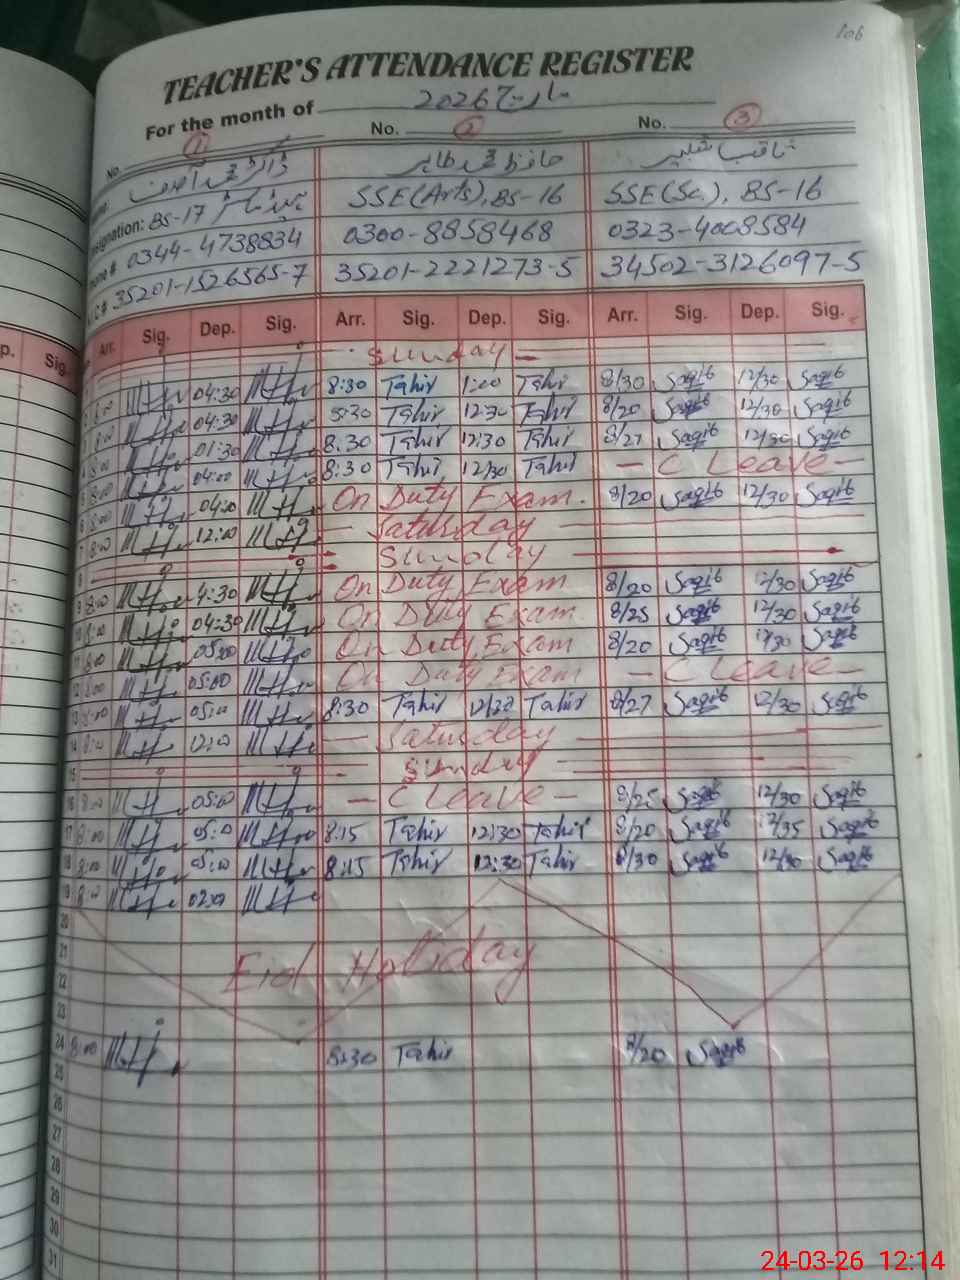 106
TEACHER'S ATTENDANCE REGISTER
For the month of مارچ 2026
No. 1 No. 2 No. 3
حافظ محمد طاہر ثاقب شبیر
esignation: BS-17 SSE(Arts), BS-16 SSE(Sc), BS-16
one # 0344-4738834 0300-8858468 0323-4008584
35201-1526565-7 35201-2221273-5 34502-3126097-5
p. Sig. Arr. Sig. Dep. Sig. Arr. Sig. Dep. Sig. Arr. Sig. Dep. Sig.
Sunday
04:30 8:30 Tahir 1:00 Tahir 8/30 Saqib 12/30 Saqib
8:00 04:30 8:30 Tahir 12:30 Tahir 8/20 Saqib 12/30 Saqib
8:00 01:30 8:30 Tahir 12:30 Tahir 8/27 Saqib 12/30 Saqib
8:00 04:00 8:30 Tahir 12/30 Tahir - C Leave -
8:00 On Duty Exam. 8/20 Saqib 12/30 Saqib
8:00 12:00 Saturday
Sunday
9 8:00 4:30 On Duty Exam 8/20 Saqib 12/30 Saqib
10 8:00 04:30 On Duty Exam 8/25 Saqib 12/30 Saqib
11 8:00 05:00 On Duty Exam 8/20 Saqib 12/30 Saqib
12 8:00 05:00 On Duty Exam - C Leave -
13 8:00 05:00 8:30 Tahir Tahir 8/27 Saqib 12/30 Saqib
14 8:00 12:00 - Saturday
15 Sunday
16 8:00 05:00 - C Leave - 8/25 Saqib 12/30 Saqib
17 8:00 05:00 8:15 Tahir 12:30 Tahir 8/20 Saqib 12/35 Saqib
18 8:00 05:00 8:15 Tahir 12:30 Tahir 8/30 Saqib 12/30 Saqib
19 8:00 02:00
20
21 Eid Holliday
22
23
24 8:00 8:30 Tahir 8/20 Saqib
25
26
27
28
29
30
31
24-03-26 12:14